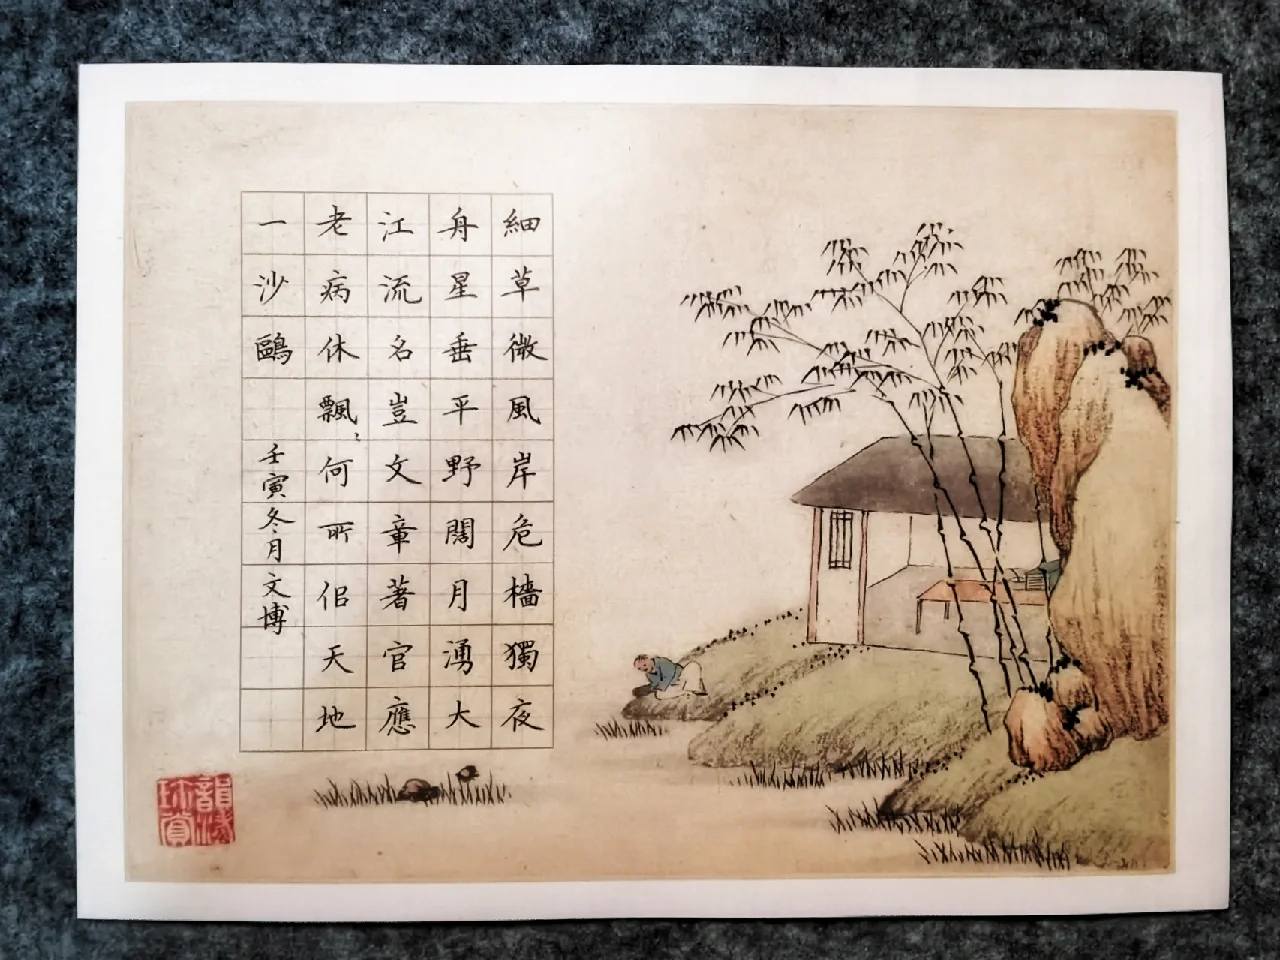 細草微風岸危檣獨夜
舟星垂平野闊月湧大
江流名豈文章著官應
老病休飄〻何所侣天地
一沙鷗
壬寅冬月文博